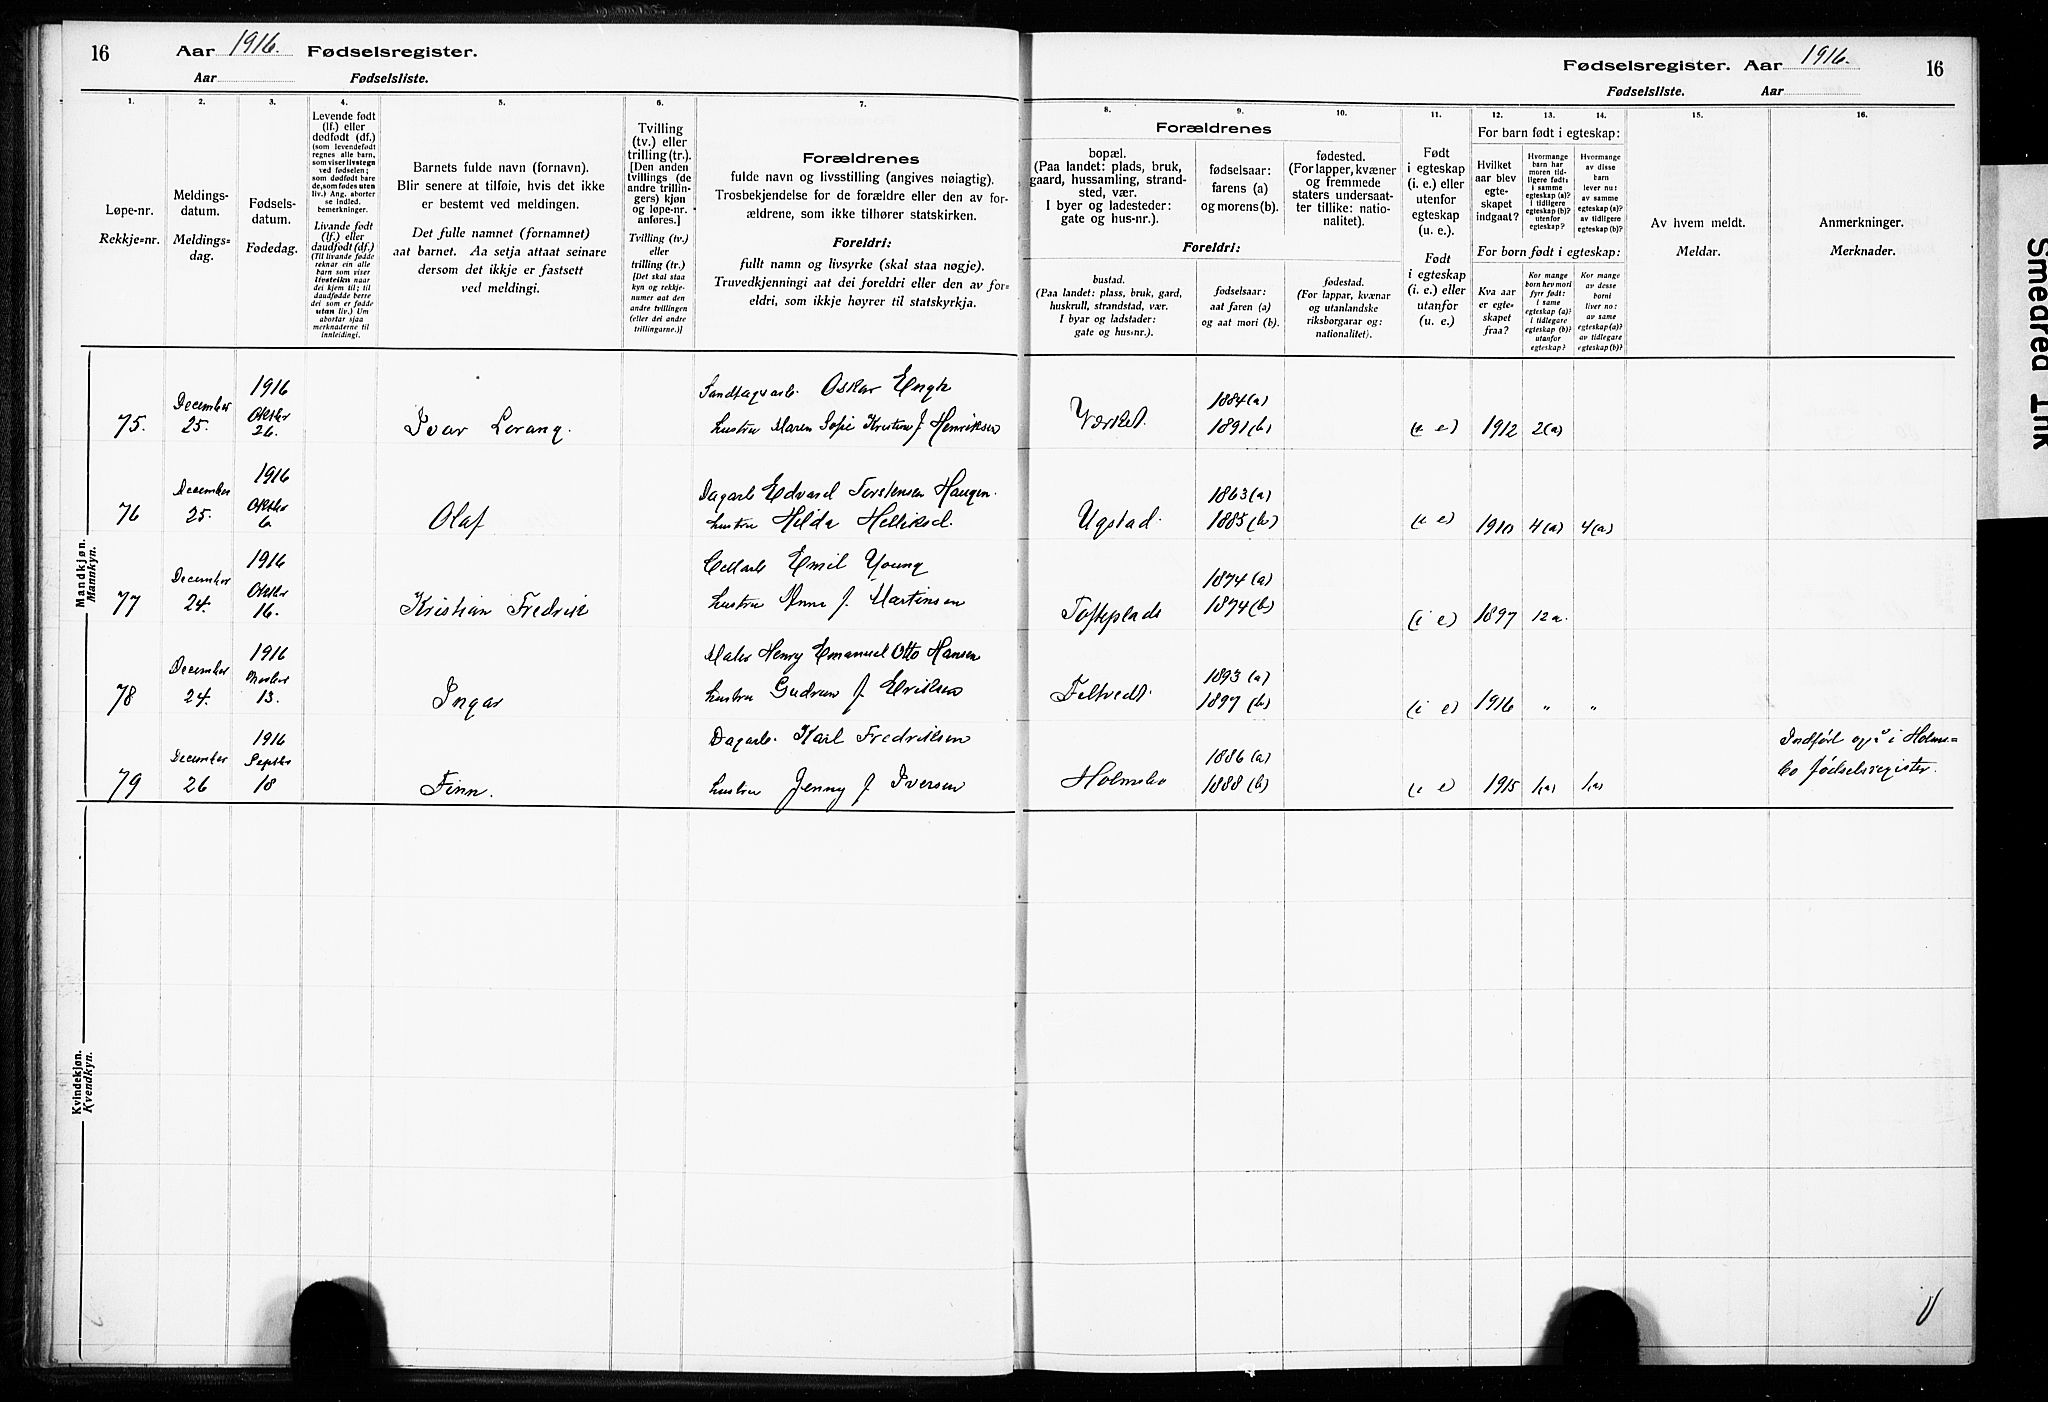 16 Aar 1916. Fødselsregister.
Aar Fødselsliste.
Fødselsregister. Aar 1916. 16
Fødselsliste. Aar
1.
Løpe-nr.
Rekkje=nr.
2.
Meldings-
datum.
Meldings=
dag.
3.
Fødsels-
datum.
Fødedag.
4.
Levende født
(lf.) eller
dødfødt (df.)
(som levendefødt
regnes alle barn,
som viser livstegn
ved fødselen;
som dødfødt bare
de, som fødes uten
liv.) Ang. aborter
se indled.
bemerkninger.
Livande født
(lf.) eller
daudfødt (df.)
(Til livande fødde
reknar ein alle
barn som viser
livsteikn naar
dei kjem til; til
daudfødde berre
dei som er fødde
utan liv.) Um
abortar sjaa
merknaderne til
innleidingi.
5.
Barnets fulde navn (fornavn).
Blir senere at tilføie, hvis det ikke
er bestemt ved meldingen.
Det fulle namnet (fornamnet)
aat barnet. Aa setja attaat seinare
dersom det ikkje er fastsett
ved meldingi.
6.
Tvilling
(tv.) eller
trilling (tr.).
[Den anden
tvillings (de
andre trillin-
gers) kjøn
og løpe-nr.
anføres.]
Tvilling (tv.)
eller
trilling (tr.)
[Det skal staa
kyn og rekkje-
numer aat den
andre tvillingen
(eller dei andre
trillingarne.)]
7.
Forældrenes
fulde navn og livsstilling (angives nøiagtig).
Trosbekjendelse for de forældre eller den av for-
ældrene, som ikke tilhører statskirken.
Foreldri:
fullt namn og livsyrke (skal staa nøgje).
Truvedkjenningi aat dei foreldri eller den av for=
eldri, som ikkje høyrer til statskyrkja.
Forældrenes
8.
bopæl.
(Paa landet: plads, bruk,
gaard, hussamling, strand-
sted, vær.
I byer og ladesteder:
gate og hus-nr.).
9.
fødselsaar:
farens (a)
og morens (b).
10.
fødested.
(For lapper, kvæner
og fremmede
staters undersaat-
ter tillike: natio-
nalitet).
Foreldri:
bustad.
(Paa landet: plass, bruk, gard,
huskrull, strandstad, vær.
I byar og ladstader:
gate og hus=nr.).
fødselsaar:
aat faren (a)
og aat mori (b).
fødestad.
(For lappar, kvænar
og utanlandske
riksborgarar og:
nationalitet).
11.
Født
i egteskap
(i. e.) eller
utenfor
egteskap
(u. e.).
Født
i egteskap
(i. e.) eller
utanfor
(u. e.).
12. 13. 14.
For barn født i egteskap:
Hvilket
aar blev
egte-
skapet
indgaat?
Hvormange
barn har
moren tid-
ligere født:
i samme
egteskap (a)?
i tidligere
egteskap (b)?
utenfor
egteskap?
Hvormange
av disse
barn
lever nu:
av samme
egteskap (a)?
av tidligere
egteskap (b)?
For born født i egteskap:
Kva aar
er egte-
skapet
fraa?
Kor mange
born hev mori
fyrr født:
i same
egteskap (a)?
i tidlegare
egteskap (b)?
utanfor
egteskap?
Kor mange
av desse
borni
liver no:
av same
egteskap (a)?
av tidlegare
egteskap (b)?
15.
Av hvem meldt.
Meldar.
16.
Anmerkninger.
Merknader.
Mandkjøn.
Mannkyn.
75. December 25. 1916 Oktober 26. Ivar Lorang. Oskar Engh
hustru Maren Sofie Kristine f Henriksen Verket. 1884 (a) 1891 (b) (i e) 1912 2(a)
76 December 25. 1916 Oktober 6. Olaf Dagarb Edvard Torstensen Haugen.
hustru Hilda Helliksd. Ugstad. 1863 (a) 1885 (b) (i e) 1910 4(a) 4(a)
77 December 24. 1916 Oktober 16. Kristian Fredrik Emil Young
hustru Anna f. Martinsen Tofteplads 1874 (a) 1874 (b) (i e) 1897 12 a.
78 December 24. 1916 13. Ingar Maler Henry Emanuel Otto Hansen
hustru Gudrun f. Eriksen Feltvedt. 1893 (a) 1897 (b) (i e) 1916 " "
79 December 26 1916 Septbr 18 Finn. Dagarb. Karl Fredriksen
hustru Jenny f Iversen Holmsbo 1886 (a) 1888 (b) (i e) 1915 1(a) 1(a) Indført også i Holms=
bo fødselsregister.
Kvindekjøn.
Kvendkyn.
Smeared Ink